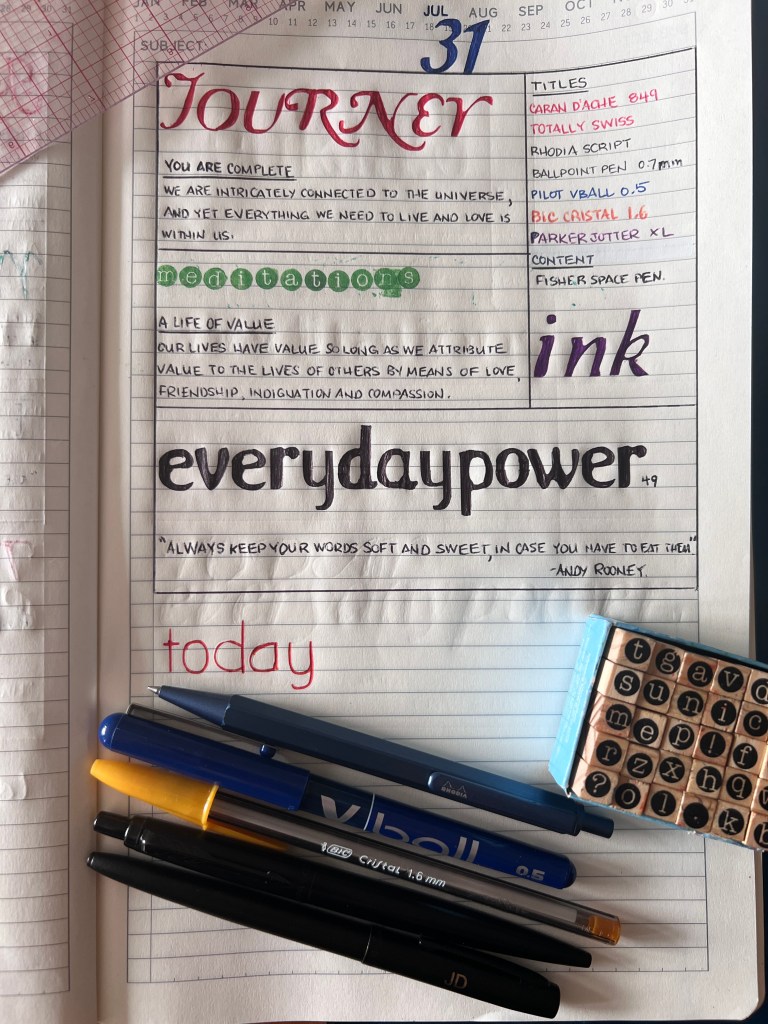 JAN FEB MAR APR MAY JUN JUL AUG SEP OCT
31
SUBJECT
JOURNEY
YOU ARE COMPLETE
WE ARE INTRICATELY CONNECTED TO THE UNIVERSE,
AND YET EVERYTHING WE NEED TO LIVE AND LOVE IS
WITHIN US.
meditations
A LIFE OF VALUE
OUR LIVES HAVE VALUE SO LONG AS WE ATTRIBUTE
VALUE TO THE LIVES OF OTHERS BY MEANS OF LOVE,
FRIENDSHIP, INDIGNATION AND COMPASSION.
TITLES
CARAN D'ACHE 849
TOTALLY SWISS
RHODIA SCRIPT
BALLPOINT PEN 0.7mm
PILOT VBALL 0.5
BIC CRISTAL 1.6
PARKER JOTTER XL
CONTENT
FISHER SPACE PEN.
ink
everydaypower 49
"ALWAYS KEEP YOUR WORDS SOFT AND SWEET, IN CASE YOU HAVE TO EAT THEM."
-ANDY ROONEY.
today
t g a v
s u n i c
m e p ! f
r z x h q
? o l . k b
RHODIA
V ball 0.5
BIC Cristal 1.6 mm
JD